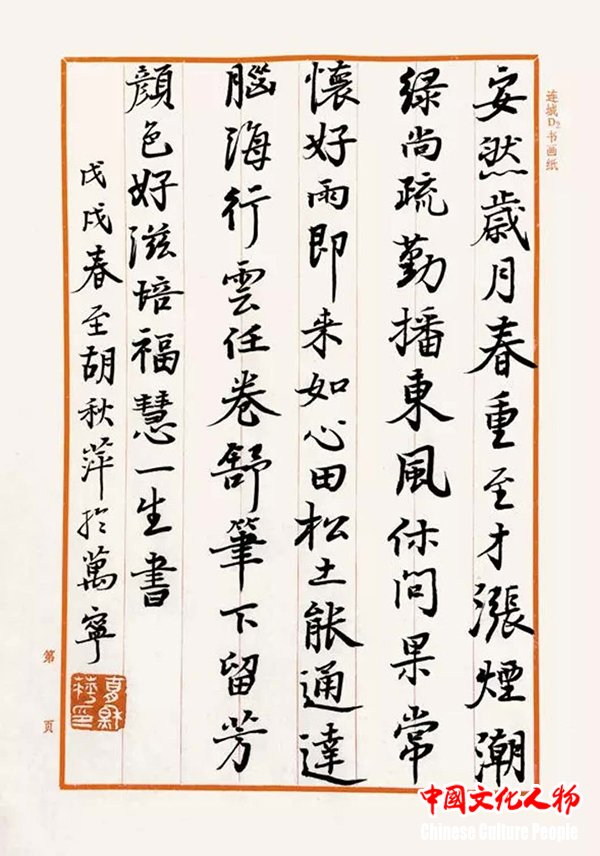 安然歲月春重至才漲煙潮
绿尚疏勤播東風休问果常
懷好雨即来如心田松土能通達
腦海行雲任卷舒筆下留芳
顔色好滋培福慧一生書
戊戌春至胡秋萍於萬寧
连城D2书画纸
第 页
中國文化人物
Chinese Culture People